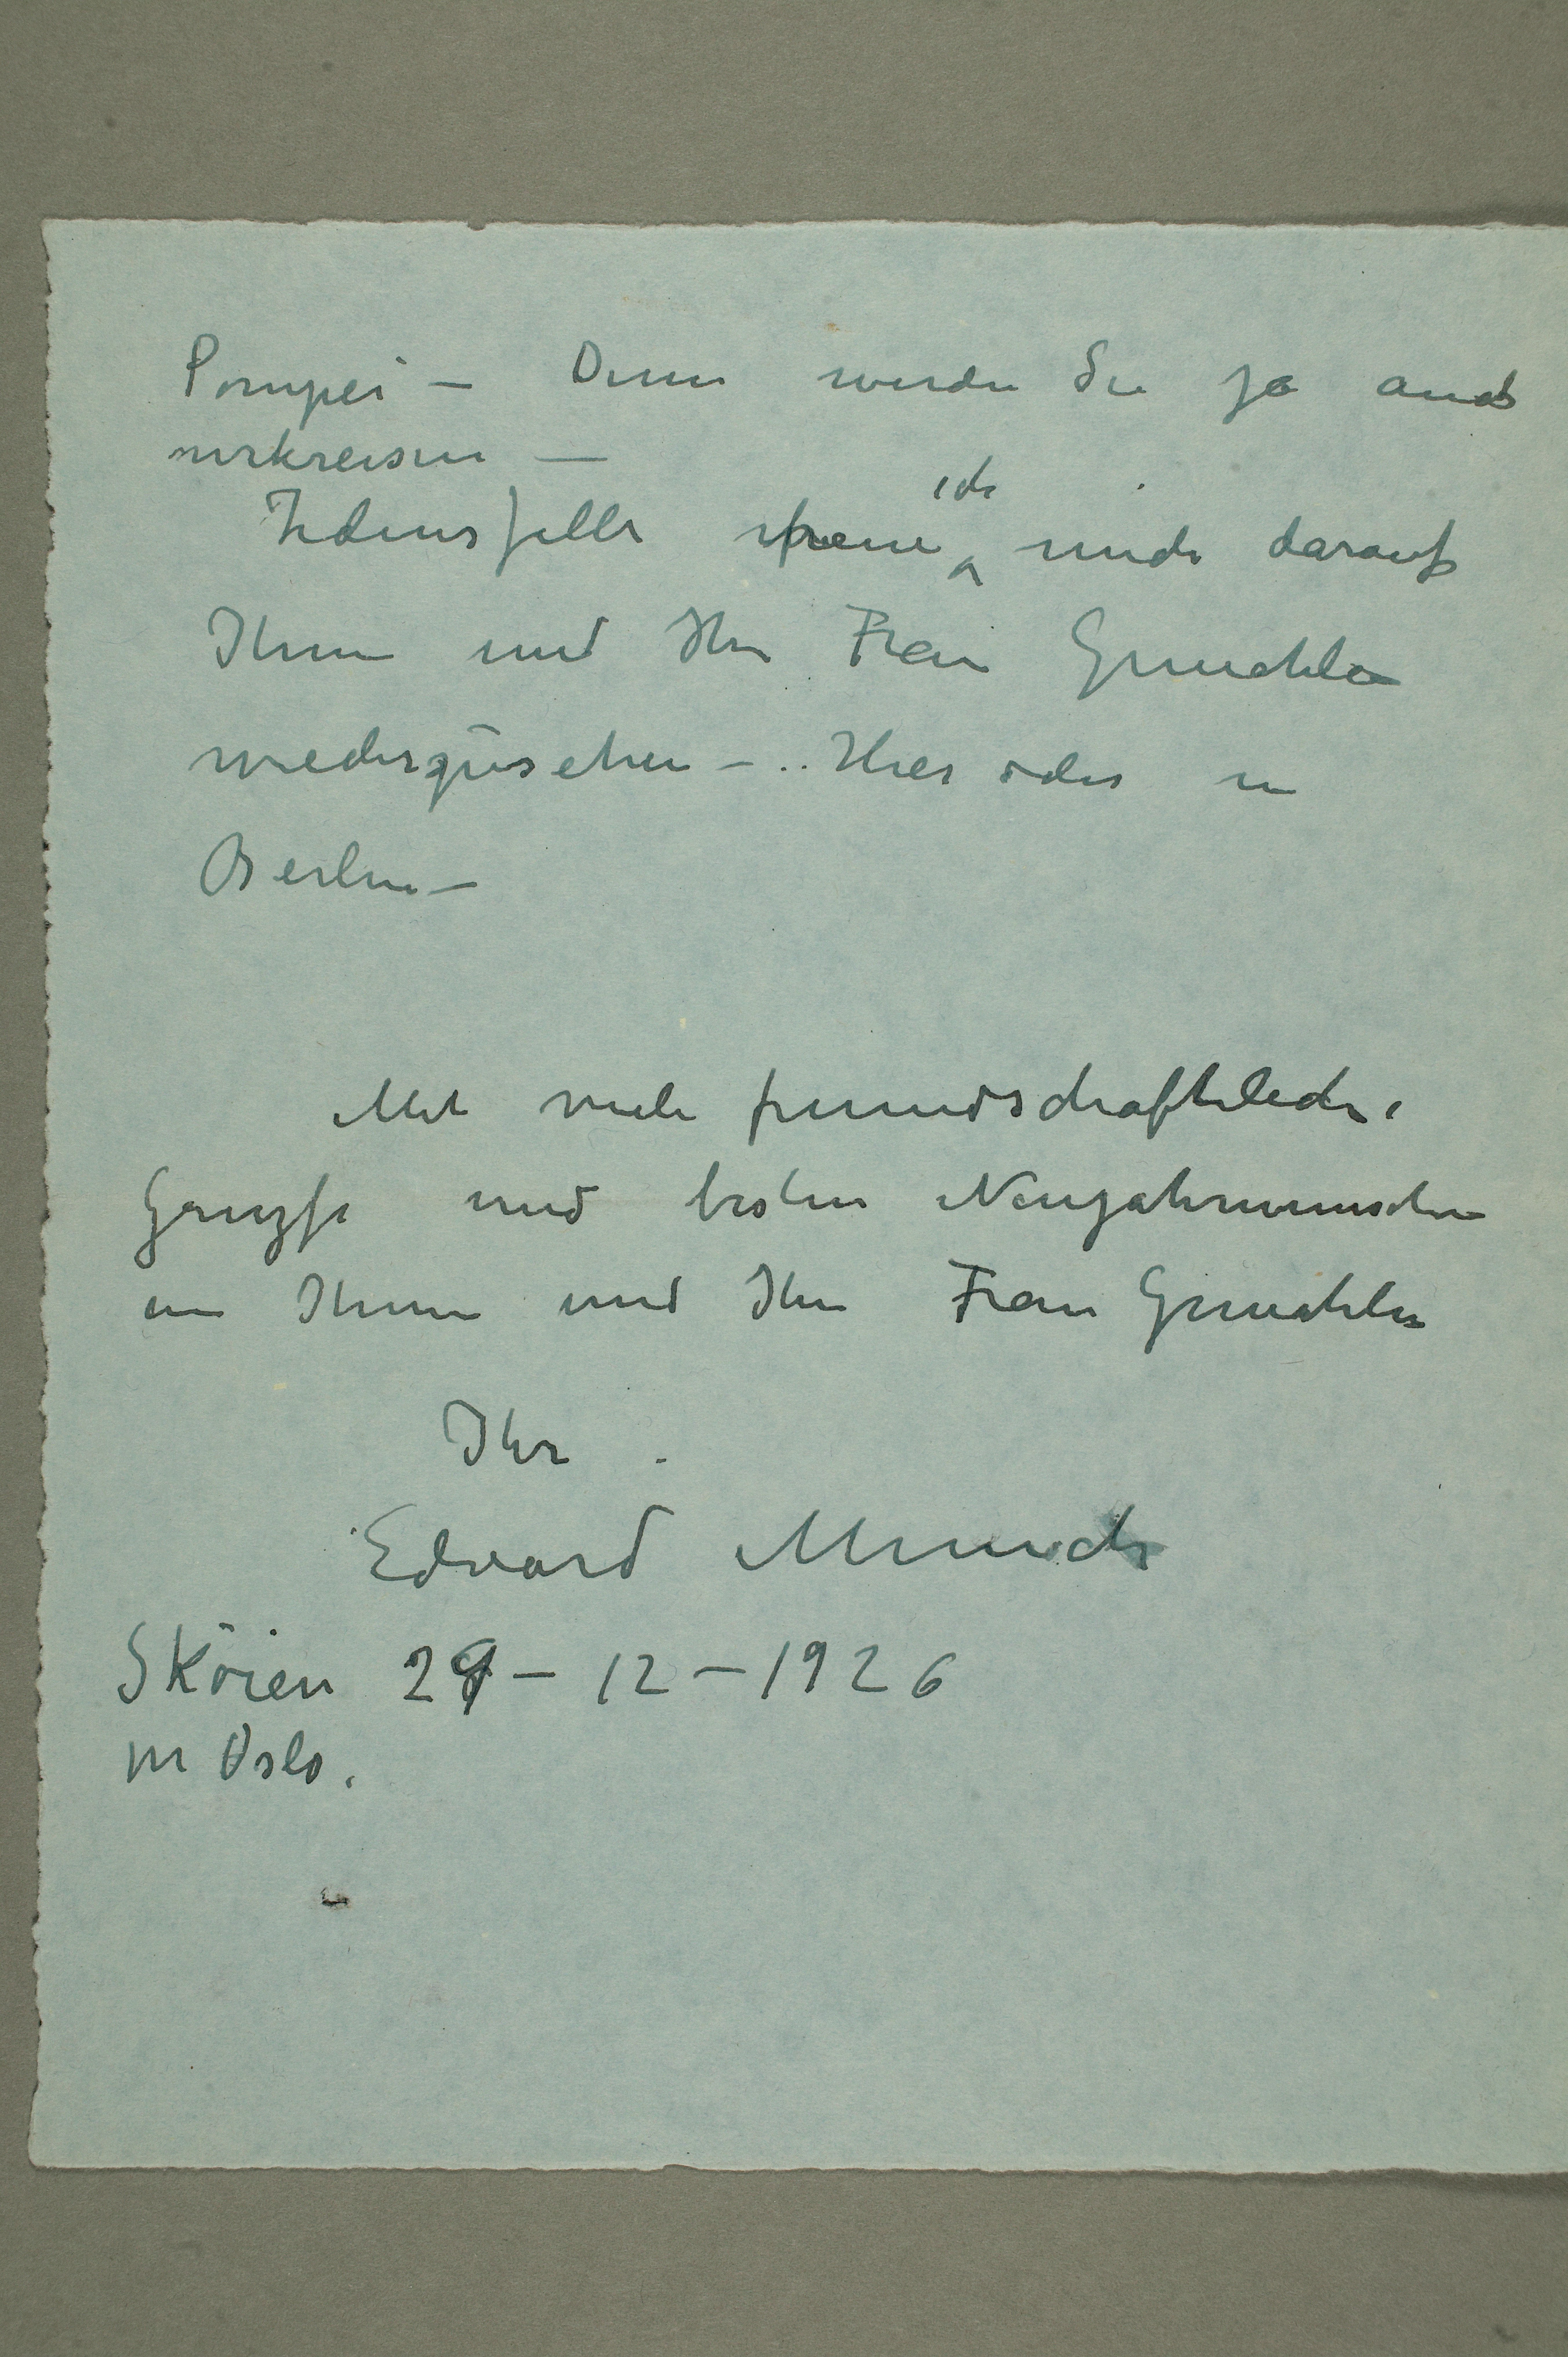 Pompei – Dann werden Sie ja auch
umkreisen –
Jedensfalls freue ich mich darauf
Ihnen und Ihre Frau Gemahlin
wiederzusehen – Hier oder in
Berlin –
Mit viele freundschaftliche
Grüsze und besten Neujahrwunschen
an Ihnen und Ihre Frau Gemahlin
Ihr
Edvard Munch
Sköien 29 – 12 – 1926
pr Oslo.